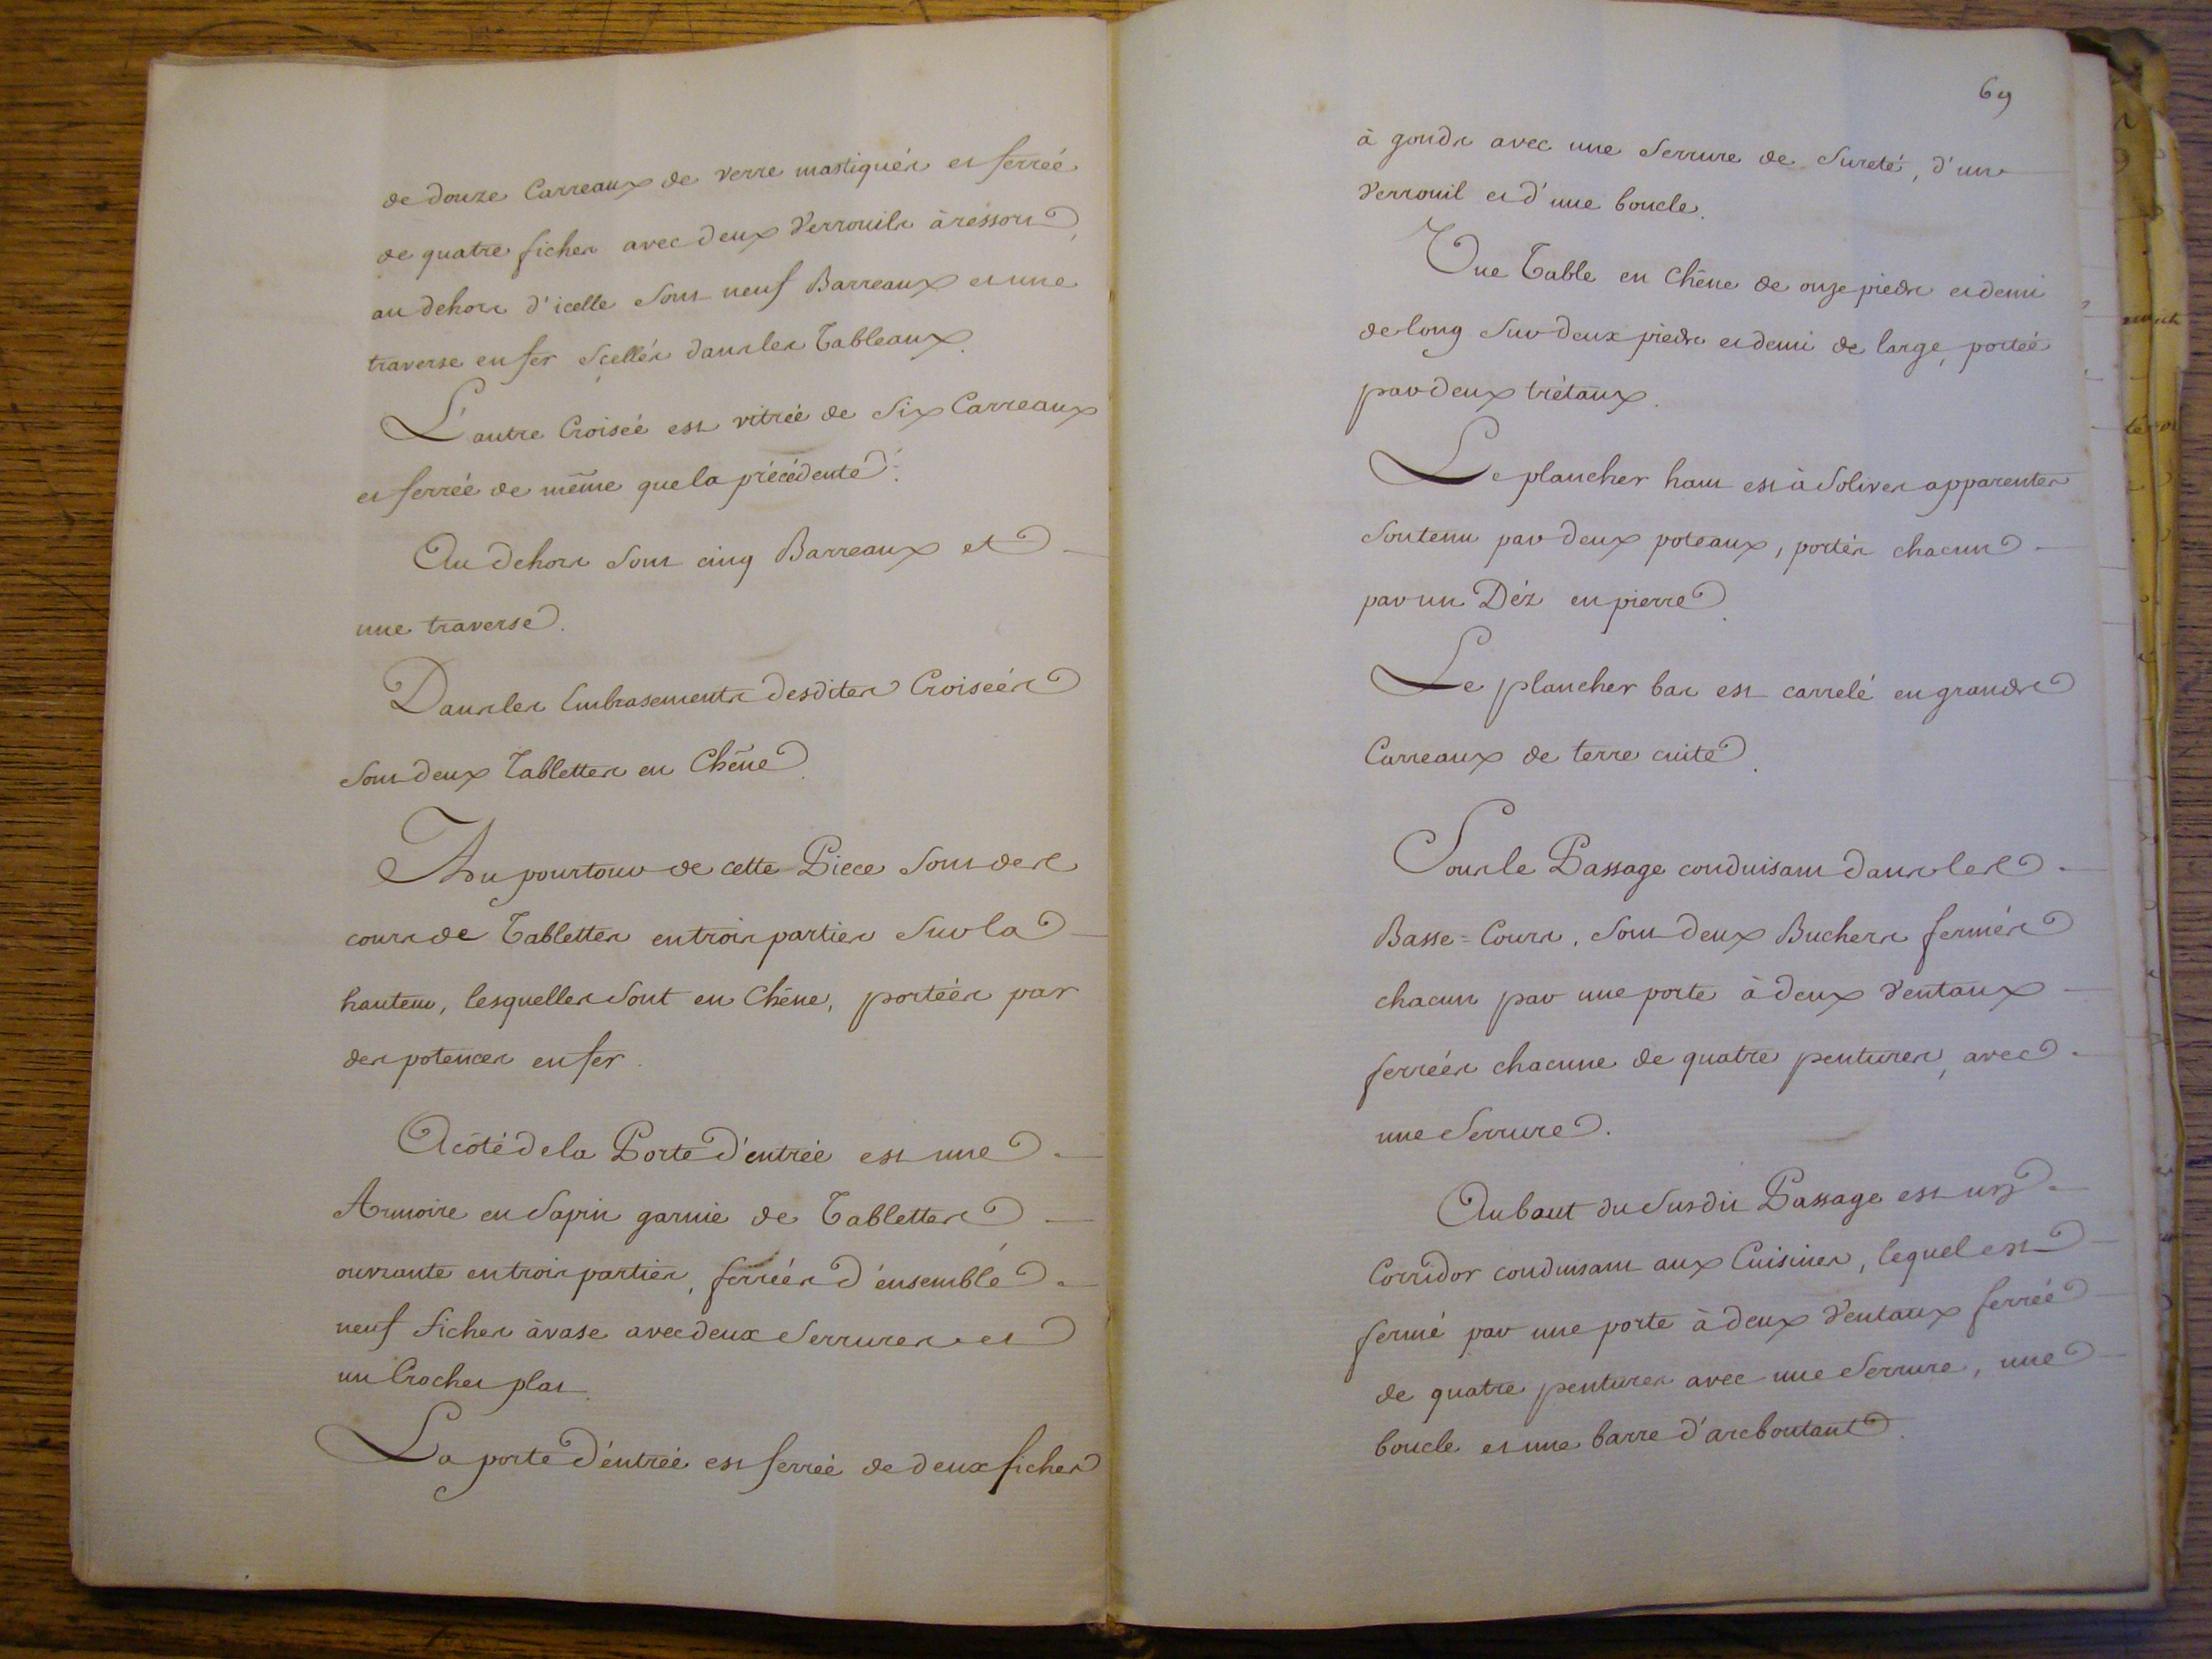 de douze Carreaux de verre mastiqués et ferrée
de quatre fiches avec deux Verrouils à ressort,
au dehors d'icelle sont neuf Barreaux et une
traverse en fer Scellés dans les Tableaux.
L'autre Croisée est vitrée de Six Carreaux
et ferrée de même que la précédente.
Au dehors sont cinq Barreaux et
une traverse.
Dans les Embrasements desdites Croisées
sont deux Tablettes en Chêne.
Au pourtour de cette Piece sont des
cours de Tablettes en trois parties Sur la
hauteur, lesquelles sont en Chêne, portées par
des potences en fer.
A côté de la Porte d'entrée est une
Armoire en Sapin garnie de Tablettes
ouvrante en trois parties, ferrées d'ensemble
neuf fiches à vase avec deux Serrures et
un Crochet plat.
La porte d'entrée est ferrée de deux fiches
69
à gonds avec une Serrure de Sureté, d'un
Verrouil et d'une boucle.
Une Table en Chêne de onze pieds et demi
de long Sur deux pieds et demi de large, portée
par deux trétaux.
Le plancher haut est à Solives apparentes
Soutenu par deux poteaux, portés chacun
par un Déz en pierre.
Le plancher bas est carrelé en grands
Carreaux de terre cuite.
Sous le Passage conduisant dans les
Basse=Cours, sont deux Buchers fermés
chacun par une porte à deux Ventaux
ferrées chacune de quatre pentures, avec
une Serrure.
Au bout du Susdit Passage est un
Corridor conduisant aux Cuisines, lequel est
fermé par une porte à deux Ventaux ferrée
de quatre pentures avec une Serrure, une
boucle et une barre d'arcboutant.